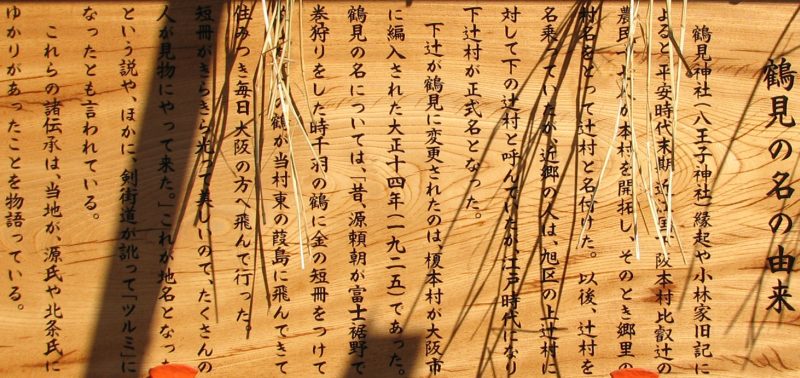 鶴見の名の由来
鶴見神社(八王子神社)縁起や小林家旧記に
よると平安時代末期 近江国 阪本村比叡辻の
農民 本村を開拓し そのとき郷里の
村名をとって辻村と名付けた。以後、辻村を
名乗っていたが、近郷の人は、旭区の上辻村に
対して下の辻村と呼んでいたが、江戸時代になり
下辻村が正式名となった。
下辻が鶴見に変更されたのは、榎本村が大阪市
に編入された大正十四年(一九二五)であった。
鶴見の名については、「昔、源頼朝が富士裾野で
巻狩りをした時千羽の鶴に金の短冊をつけて
鶴が当村東の葭島に飛んできて
住みつき毎日大阪の方へ飛んで行った。
短冊がきらきら光って美しいので、たくさんの
人が見物にやって来た。」これが地名となった
という説や、ほかに、剣街道が訛って「ツルミ」に
なったとも言われている。
これらの諸伝承は、当地が、源氏や北条氏に
ゆかりがあったことを物語っている。